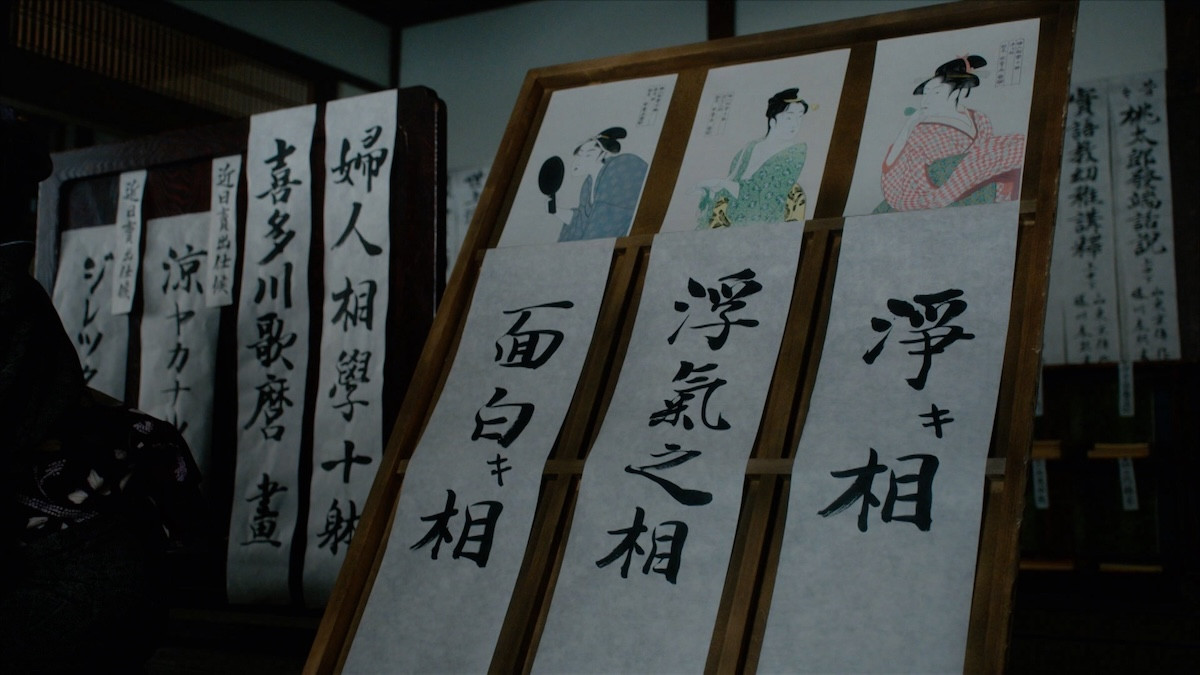 桃太郎發端話説
實語教幼稚講釋
淨キ相
浮氣之相
面白キ相
婦人相學十躰
喜多川歌麿 畫
近日賣出仕候
涼ヤカナル
近日賣出仕候
ジレツタ